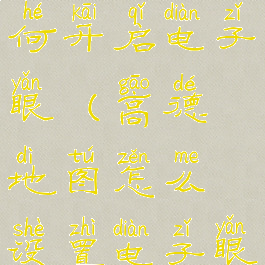 hé kāi qǐ diàn zǐ
何开启电子
yǎn gāo dé
眼(高德
dì tú zěn ma
地图怎么
shè zhì diàn zǐ yǎn
设置电子眼